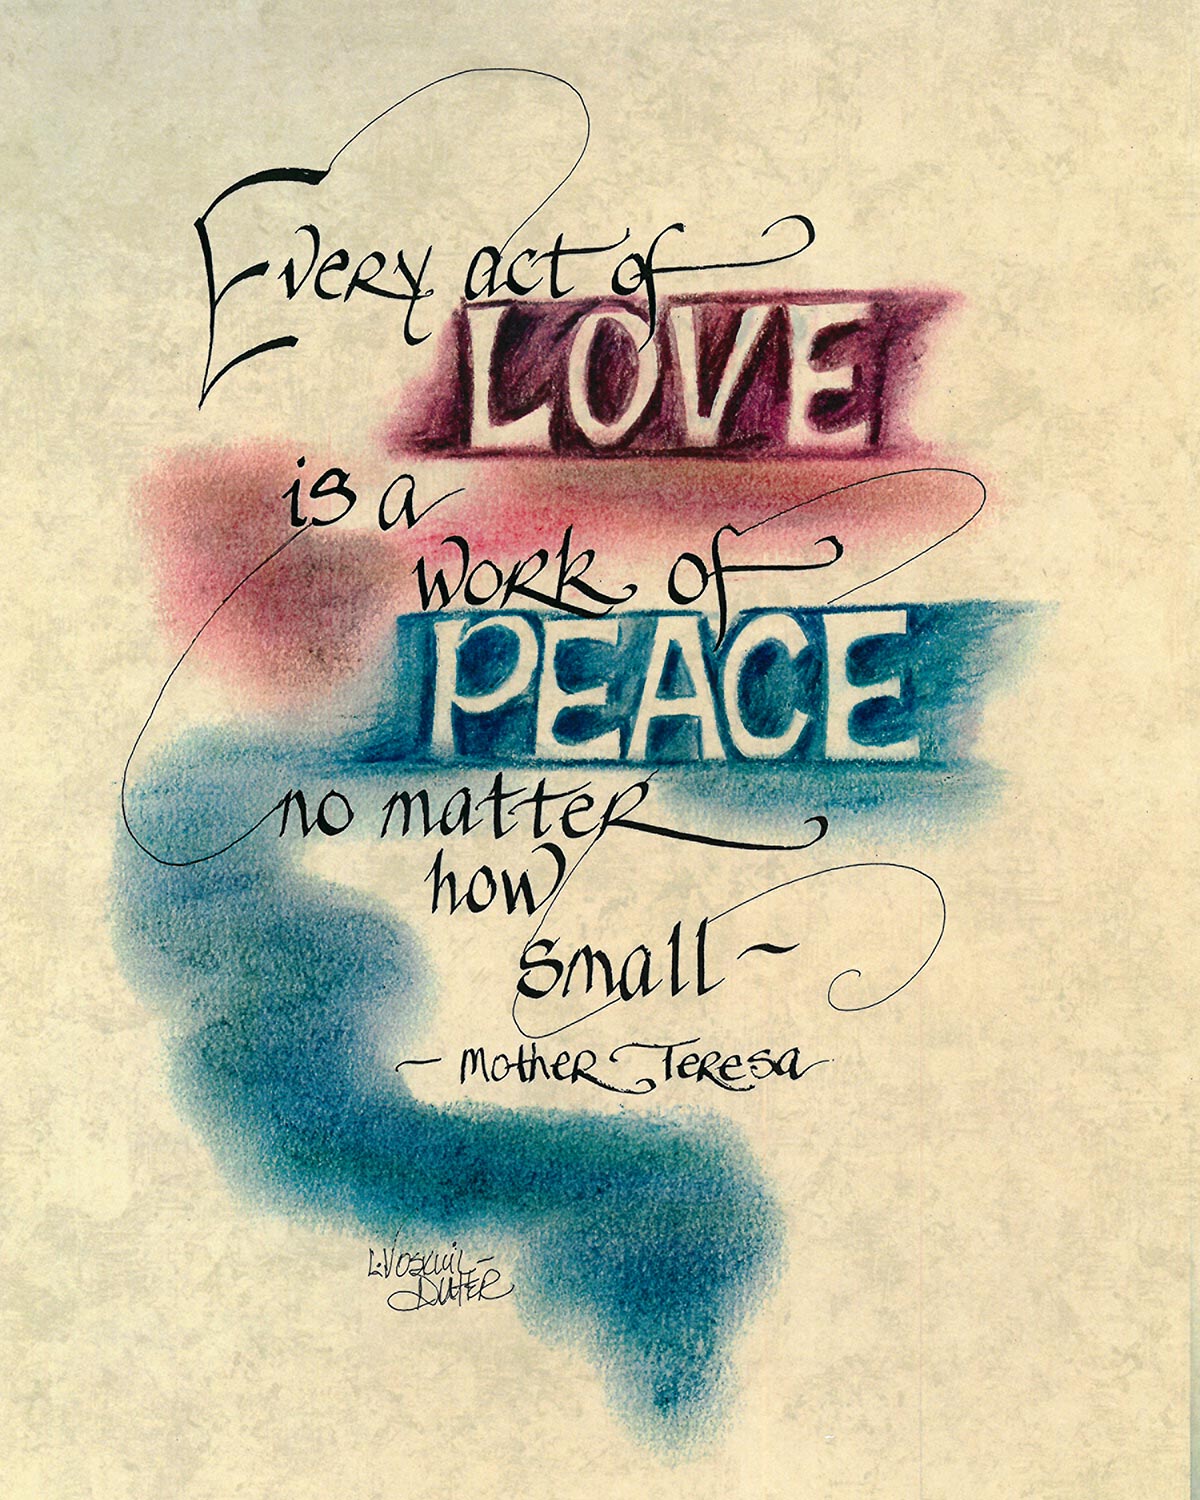 Every act of
LOVE
is a
work of
PEACE
no matter
how
small ~
- Mother Teresa
L. Voskuil-
Duter